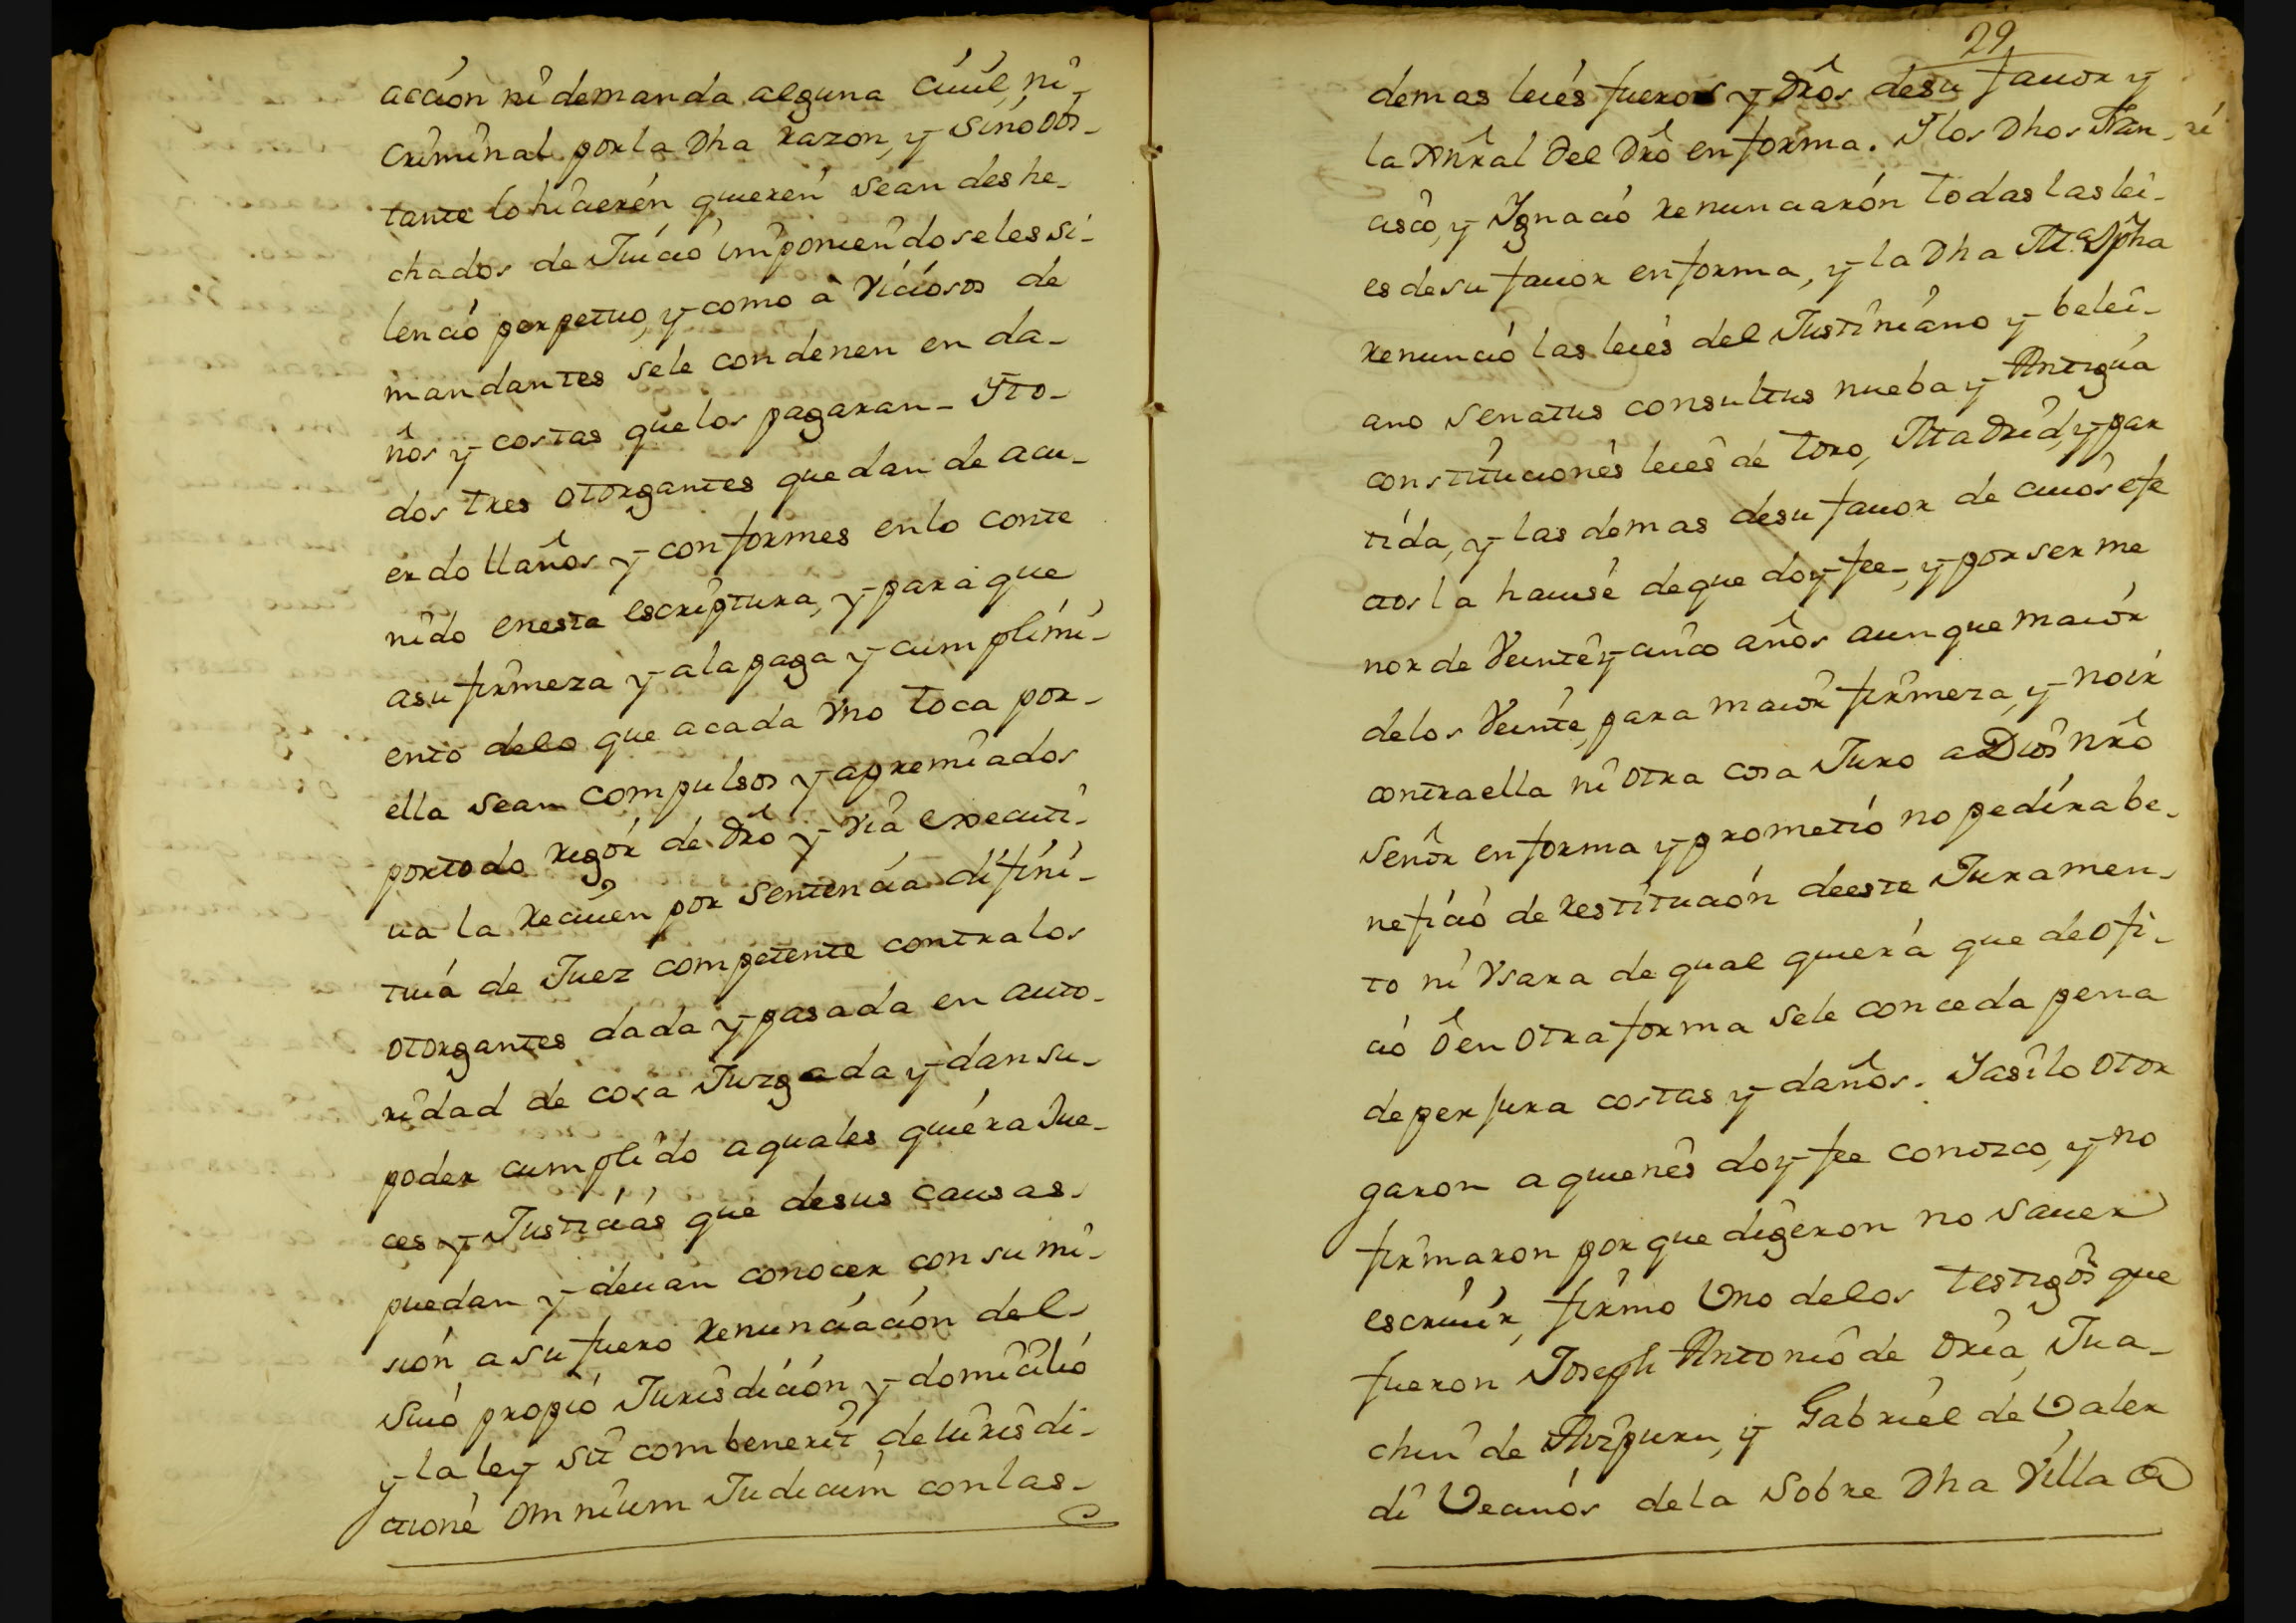 accion ni demanda alguna ciuil, ni-
criminal por la Dha razon, y sinobs-
tante lo hicieren quieren sean deshe-
chados de Juicio imponiendoseles si-
lencio perpetuo, y como à Viciosos de
mandantes sele condenen en da-
ños y costas que los pagaran - Yto-
dos tres otorgantes quedan de acu-
erdo llaños y conformes enlo conte
nido enesta escriptura, y para que
asu firmeza y ala paga y cumplimi-
ento delo que acada Vno toca por-
ella sean compulsos y apremiados
portodo rigor de drô y via executi-
ua la reciuen por sentencia difini-
tiuá de Juez competente contralos
otorgantes dada y pasada en auto-
ridad de cosa Juzgada y dan su-
poder cumplido aquales quiera Jue-
ces y Justiciás que desus causas-
puedan y deuan conocer con sumi-
sión asu fuero renunciación del-
Suió propió Jurisdición y domicilió
y la ley sit combenerit de Iurisdi-
ctioné omnium Judicum conlas-
29
demas leiés fueros y drôs desu fauor y
la Gnrâl del Drô en forma. Ylos Dhos Fran-
cisco, y Ygnació renunciarón todas las lei-
es desu fauor en forma, y la Dha Mª Jpha
renunció las leiés del Justiniano y belei-
ano senatus consultus nueba y Antigua
constituciones leies de Toro, Madrid, y par
tida, y las demas desu fauor de cuiòs efe
ctos la hauisé deque doy fee-, y por ser me
nor de Veinte y cinco años aunque maior
delos Veinte, para maior firmeza, y no ir
contraella ni otra cosa Juro a Dios nrô
señor en forma y prometió no pedira be-
nefició de restitución deeste Juramen-
to ni Vsara de qual quierá que de ofi-
ció ô en otra forma sele conceda pena
de perjura costas y daños. Yasilo otor
garon aquienes doy fee conozco, y no
firmaron porque digeron no sauer
escriuir, firmo Vno delos testigos que
fueron Joseph Antonio de Oria, Jua-
chin de Aizpuru, y Gabriel de Valer
di Vecinós dela sobre Dha Villa